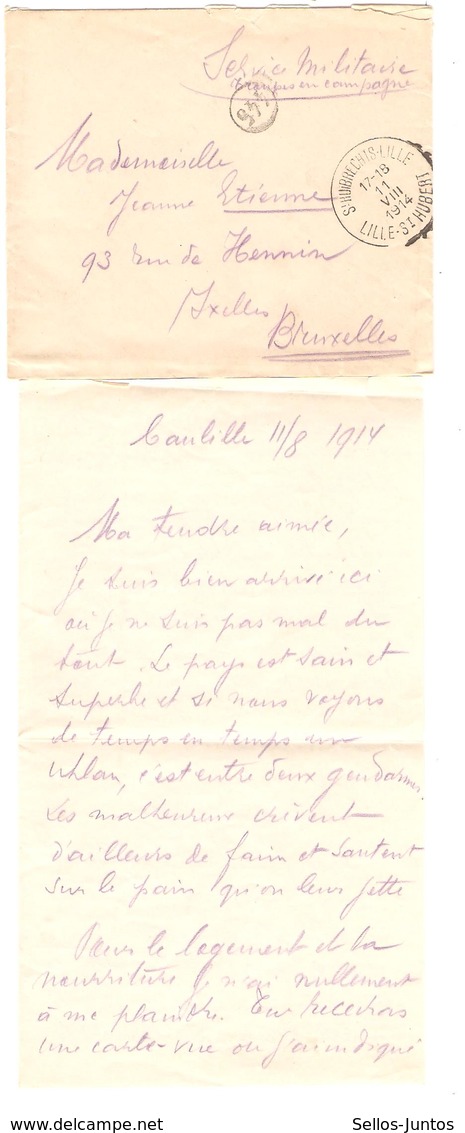 Service Militaire
troupes en campagne
Mademoiselle
Jeanne Etienne
93 rue de Hennin
Ixelles
Bruxelles
St HUIBRECHTS-LILLE
17-18
11
VIII
1914
LILLE-St HUBERT
Caulille 11/8 1914
Ma tendre aimée,
Je suis bien arrivé ici
où je ne suis pas mal du
tout. Le pays est sain et
superbe et si nous voyons
de temps en temps un
uhlan, c'est entre deux gendarmes.
Les malheureux crèvent
d'ailleurs de faim et sautent
sur le pain qu'on leur jette
Pour le logement et la
nourriture je n'ai nullement
à me plaindre. Tu recevras
une carte-vue où j'ai indiqué
www.delcampe.net
Sellos-Juntos